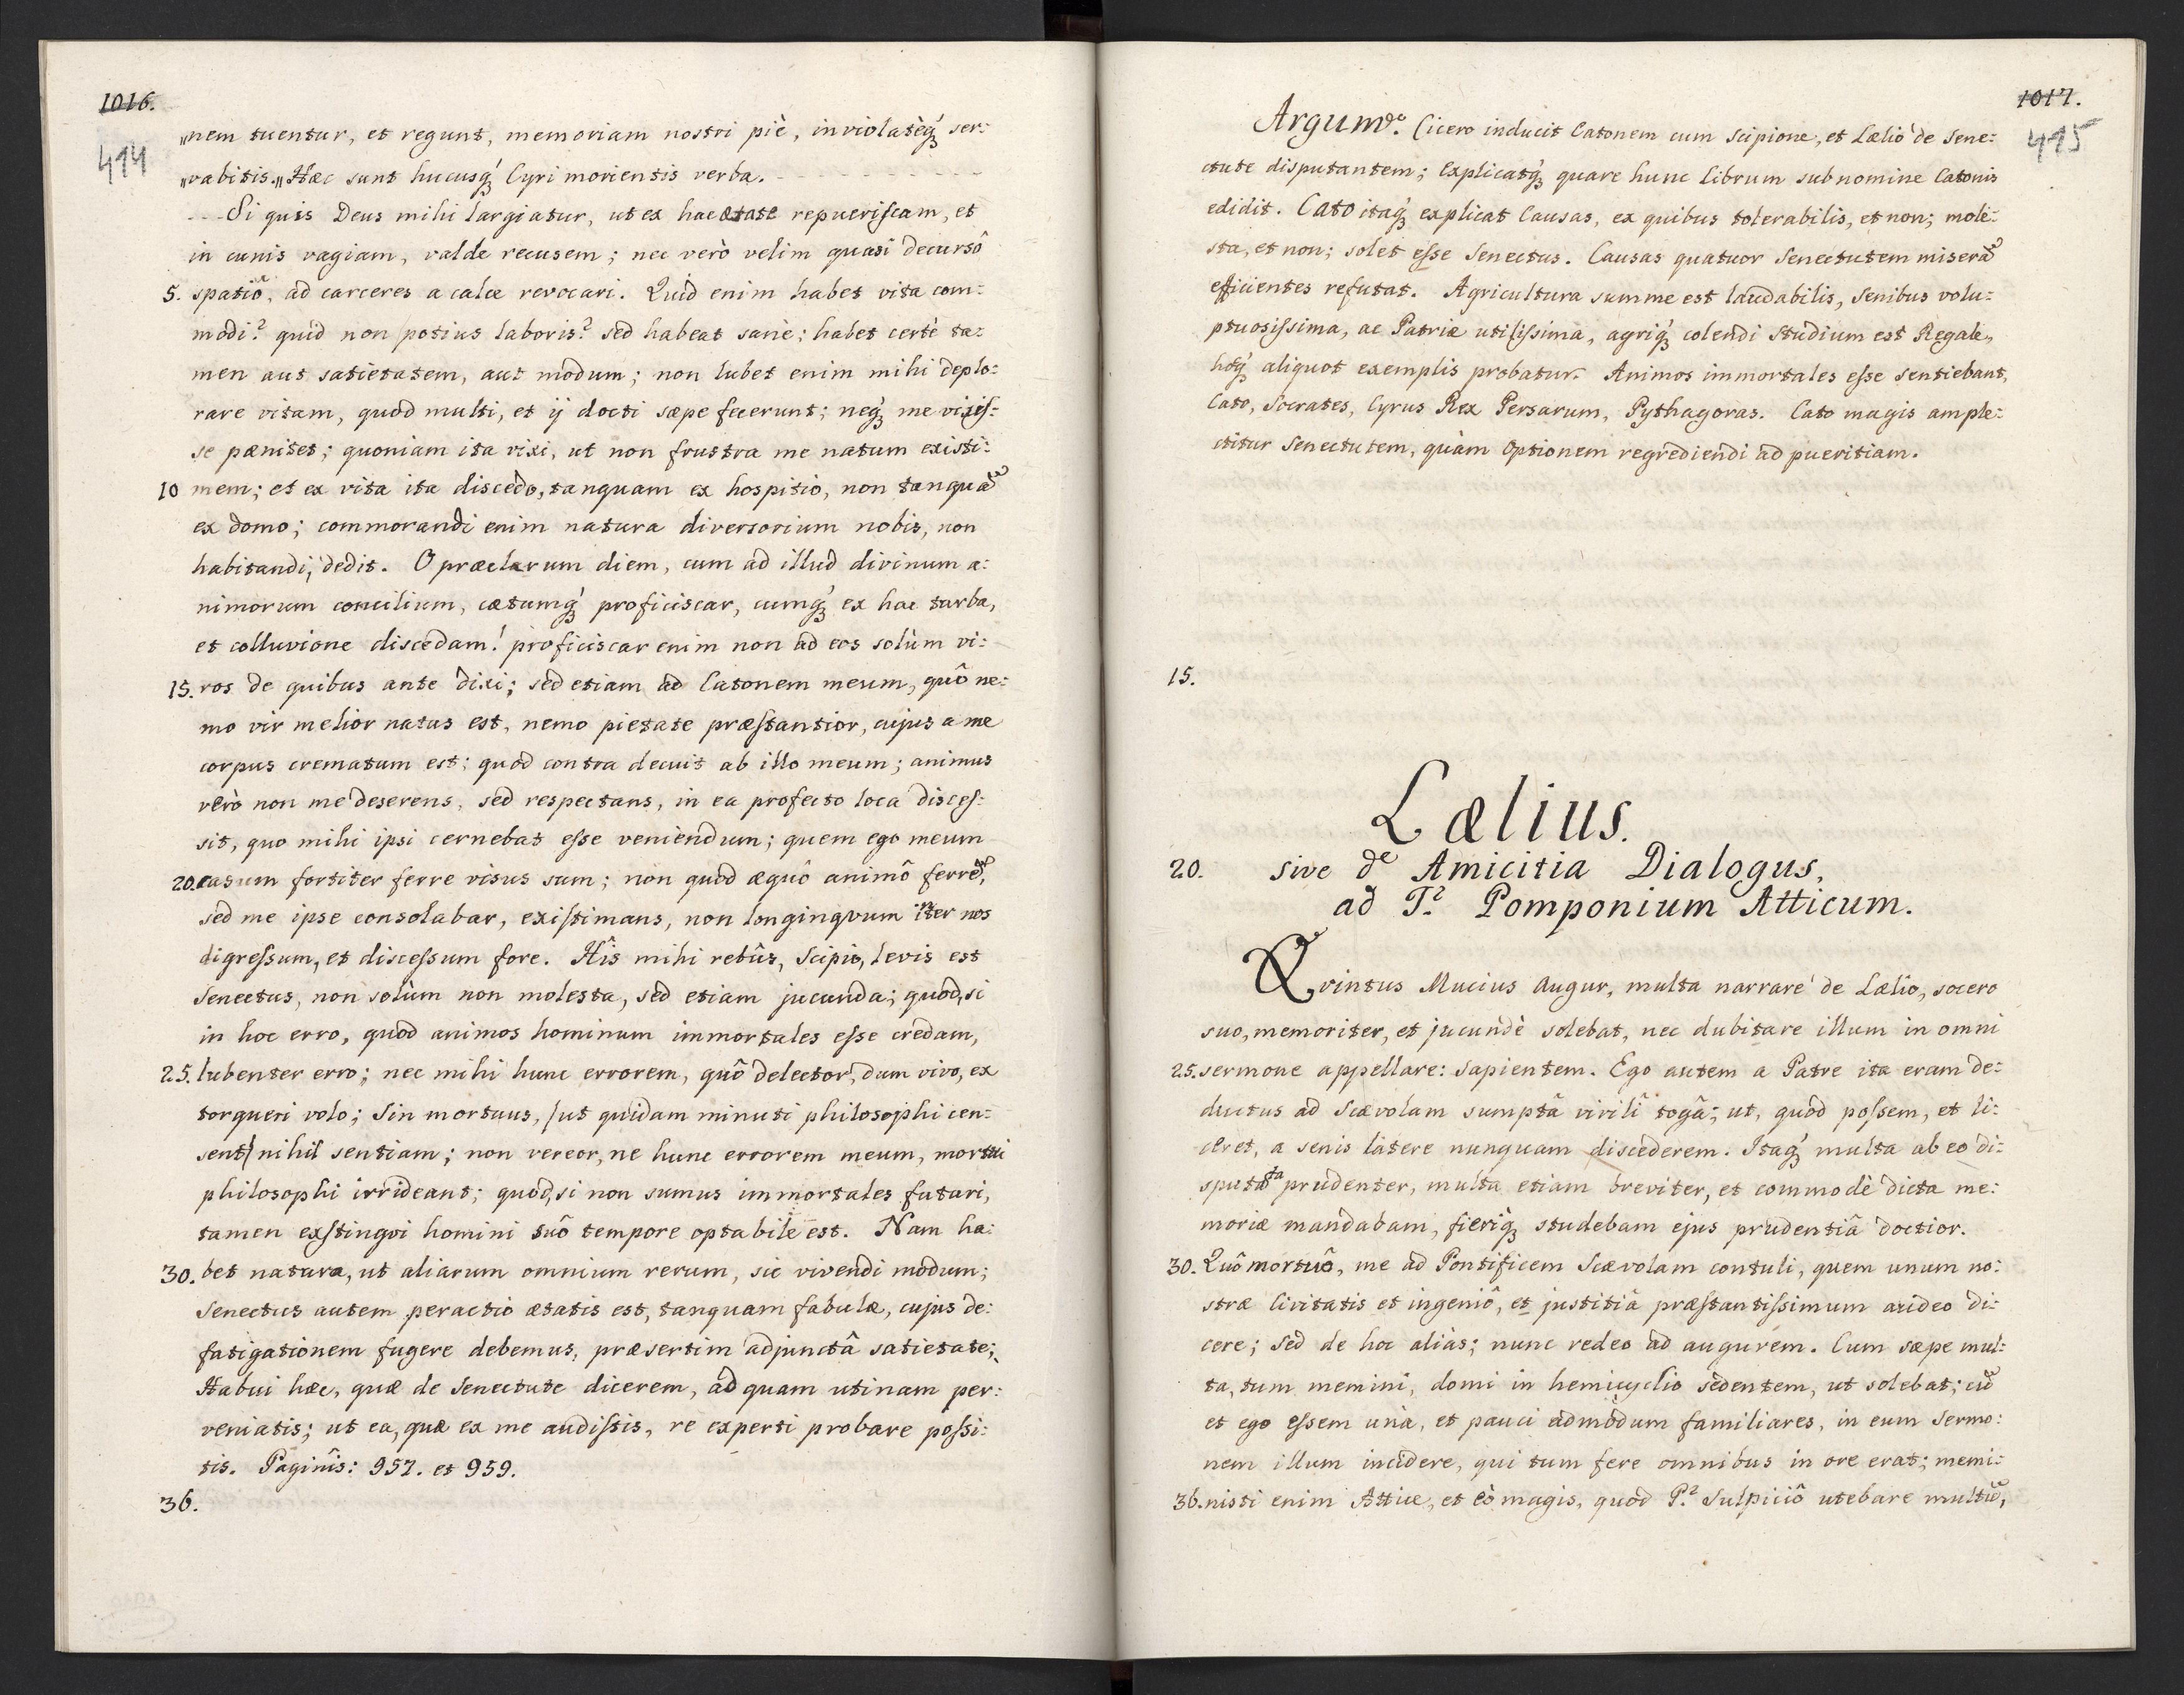 1016.
414
„nem tuentur, et regunt, memoriam nostri piè, inviolatèq́ꝫ ser:
„vabitis.„ Hæc sunt hucusq́ꝫ Cyri morientis verba. - - - - - - - -
- - - Si quis Deus mihi largiatur, ut ex hac ætate repueriſcam, et
in cunis vagiam, valde recusem; nec verò velim quasi decursô
5. spatiô, ad carceres a calce revocari. Quid enim habet vita com:
modi? quid non potius laboris? sed habeat sanè; habet certè ta:
men aut satietatem, aut modum; non lubet enim mihi deplo:
rare vitam, quod multi, et ij docti sæpe fecerunt; neq́ꝫ me vixiſ:
se pænitet; quoniam ita vixi, ut non frustra me natum existi:
10 mem; et ex vita ita discedo, tanquam ex hospitio, non tanquã
ex domo; commorandi enim natura diversorium nobis, non
habitandi, dedit. O præclarum diem, cum ad illud divinum a:
nimorum concilium, cætumq́ꝫ proficiscar, cumq́ꝫ ex hac turba,
et colluvione discedam! proficiscar enim non ad eos solùm vi:
15. ros de quibus ante dixi; sed etiam ad Catonem meum, quô ne:
mo vir melior natus est, nemo pietate præſtantior, cujus a me
corpus crematum est; quod contra decuit ab illo meum; animus
verò non me deserens, sed respectans, in ea profecto loca disceſ:
sit, quo mihi ipsi cernebat eſse veniendum; quem ego meum
20. casum fortiter ferre visus sum; non quod æquô animô ferrẽ,
sed me ipse consolabar, exiſtimans, non longinqvum iñter nos
digreſsum, et disceſsum fore. Hîs mihi rebûs, Scipio, levis est
Senectus, non solùm non molesta, sed etiam jucunda; quod, si
in hoc erro, quod animos hominum immortales eſse credam,
25. lubenter erro; nec mihi hunc errorem, quô delector, dum vivo, ex
torqueri volo; Sin mortuus, /ut quidam minuti philosophi cen:
sent/ nihil sentiam; non vereor, ne hunc errorem meum, mortui
philosophi irrideant; quod, si non sumus immortales futuri,
tamen exſtingvi homini suô tempore optabile est. Nam ha:
30. bet natura, ut aliarum omnium rerum, sic vivendi modum;
Senectus autem peractio ætatis est, tanquam fabulæ, cujus de:
fatigationem fugere debemus, præsertim adjunctâ satietate;
Habui hæc, quæ de Senectute dicerem, ad quam utinam per:
veniatis; ut ea, quæ ex me audiſtis, re experti probare poſsi:
tis. Paginîs: 957. et 959.
36.
1017.
415
Argum͠: Cicero inducit Catonem cum Scipione, et Lælio de Sene:
ctute disputantem; Explicatq́ꝫ quare hunc librum sub nomine Catonis
edidit. Cato itaq́ꝫ explicat Causas, ex quibus tolerabilis, et non; mole:
sta, et non; solet eſse Senectus. Causas quatuor Senectutem miserã
efficientes refutat. Agricultura summe est laudabilis, Senibus volu:
ptuosiſsima, ac Patriæ utiliſsima, agriq́ꝫ colendi Studium est Regale,
hóq́ꝫ aliquot exemplis probatur. Animos immortales eſse sentiebant,
Cato, Socrates, Cyrus Rex Persarum, Pythagoras. Cato magis ample:
ctitur Senectutem, quàm Optionem regrediendi ad pueritiam.
15.
Lælius.
20. sive de Amicitia Dialogus,
ad T. Pomponium Atticum.
Qvintus Mucius Augur, multa narrare de Lælio, socero
suo, memoriter, et jucundè solebat, nec dubitare illum in omni
25. sermone appellare: Sapientem. Ego autem a Patre ita eram de:
ductus ad Scævolam sumptâ virilî togâ; ut, quòd poſsem, et li:
ceret, a senis latere nunquam discederem. Itaq́ꝫ multa ab eo di:
sputata prudenter, multa etiam breviter, et commodè dicta me:
moriæ mandabam, fieriq́ꝫ studebam ejus prudentiâ doctior.
30. Quô mortuô, me ad Pontificem Scævolam contuli, quem unum no:
stræ Civitatis et ingeniô, et justitiâ præſtantiſsimum audeo di:
cere; Sed de hoc aliàs; nunc redeo ad augurem. Cum sæpe mul:
ta, tum memini, domi in hemicyclio sedentem, ut solebat; cũ
et ego eſsem unà, et pauci admòdum familiares, in eum Sermo:
nem illum incidere, qui tum fere omnibus in ore erat; memi:
36. nisti enim Attice, et eò magis, quòd P. Sulpiciô utebare multũ,